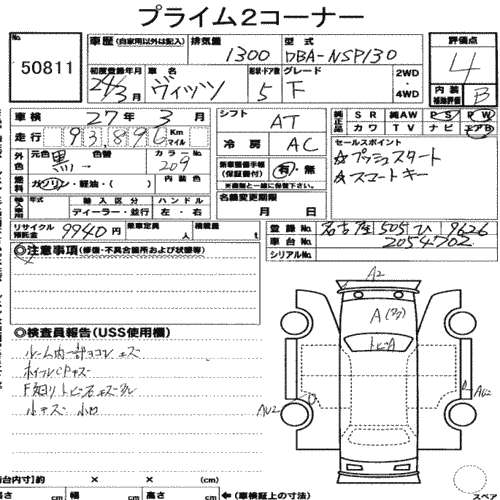 プライム2コーナー
No.
50811
車歴 (自家用以外は記入) 排気量 1300 型式 DBA-NSP130
初度登録年月 24/3月 車名 ヴィッツ 形状・ドア数 5 グレード F 2WD・4WD
評価点 4
内装補助評価 B
車検 27年 3月
走行 93,896 Km マイル
シフト AT
冷房 AC
純正品 SR 純AW PS PW
カワ TV ナビ エアB
外色 元色 黒 色替 カラーNo. 209
燃料 ガソリン・軽油・( ) 内装色
新車整備手帳(保証書付) 有・無
※車検と一緒に保管下さい。
セールスポイント
☆プッシュスタート
☆スマートキー
輸入車 年式 輸入区分 ハンドル
ディーラー・並行 左・右
名義変更期限
月 日
リサイクル預託金 9940円 乗車定員 名 積載量 t
登録No. 名古屋 505 ひ 9626
車台No. 2054702
シリアルNo.
◎注意事項(修復・不具合箇所および状態等)
◎検査員報告(USS使用欄)
ルーム内一部ヨゴレ キズ
ホイールCPキズ
小キズ 小凹
A2
A(ワク)
トビA
AU2
AU2
荷台内寸)約 × × (車検証上の寸法)
高さ cm 幅 cm 高さ cm
スペア